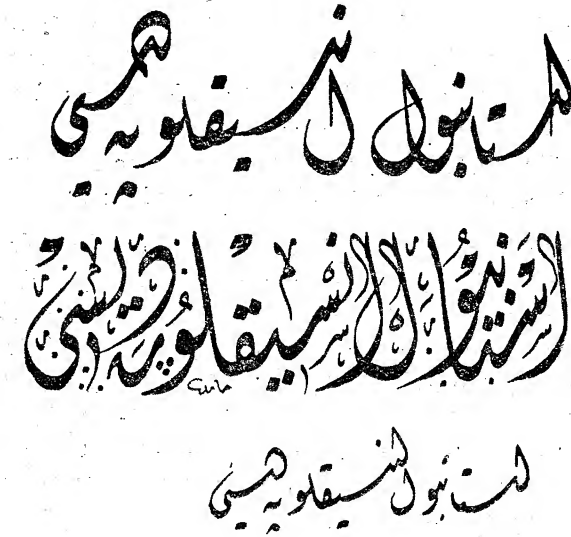 استانبول انسيقلوپه ديسى
استانبول انسيقلوپه ديسى
استانبول انسيقلوپه ديسى